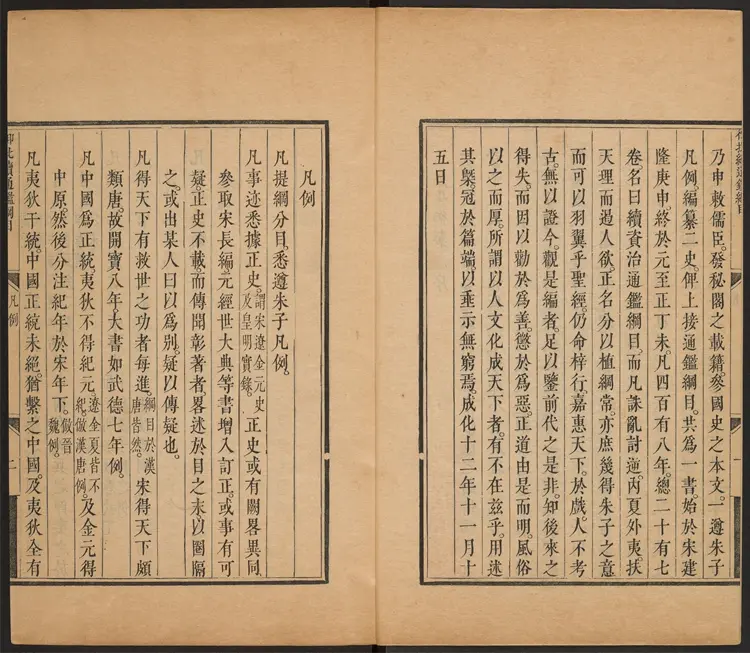 乃申敕儒臣。發秘閣之載籍。參國史之本文。一遵朱子
凡例。編纂二史。俾上接通鑑綱目。共爲一書。始於宋建
隆庚申。終於元至正丁未。凡四百有八年。總二十有七
卷。名曰續資治通鑑綱目。而凡誅亂討逆。內夏外夷。扶
天理而遏人欲。正名分以植綱常。亦庶幾得朱子之意
而可以羽翼乎聖經。仍命梓行。嘉惠天下。於戲。人不考
古。無以證今。觀是編者。足以鑒前代之是非。知後來之
得失。而因以勸於爲善。懲於爲惡。正道由是而明。風俗
以之而厚。所謂以人文化成天下者。有不在茲乎。用述
其槩。冠於篇端。以垂示無窮焉。成化十二年十一月十
五日
凡例
凡提綱分目。悉遵朱子凡例。
凡事迹悉據正史。謂宋遼金元史及皇明實錄。正史或有闕畧異同
參取宋長編。元經世大典等書增入訂正。或事有可
疑。正史不載。而傳聞彰著者。畧述於目之末。以圈隔
之。或出某人曰以爲別。疑以傳疑也。
凡得天下有救世之功者每進。綱目於漢唐皆然。宋得天下頗
類唐。故開寶八年。大書如武德七年例。
凡中國爲正統。夷狄不得紀元。遼金夏皆不紀倣漢唐例。及金元得
中原。然後分注紀年於宋年下。倣晉魏例。
凡夷狄干統。中國正統未絕。猶繫之中國。及夷狄全有
凡例
二
一